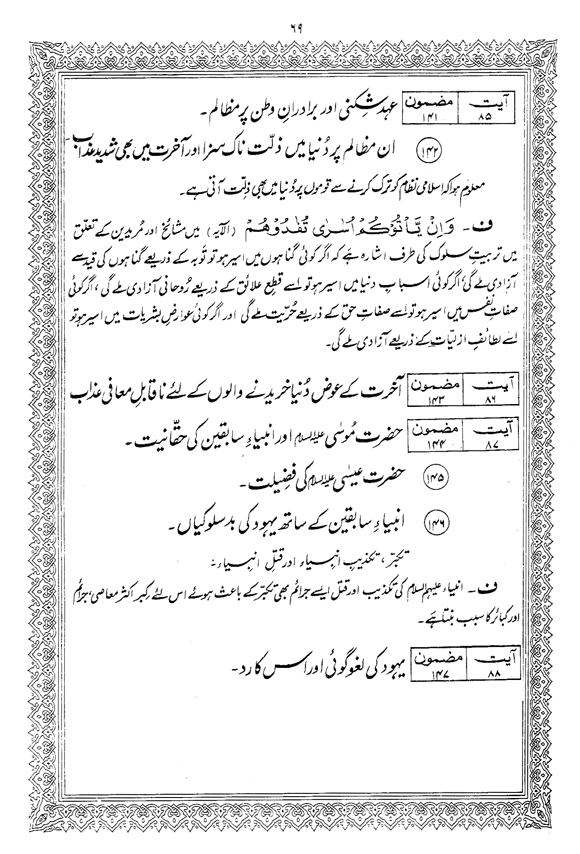 ۶۹
آیت ۸۵ مضمون ۱۴۱ عہد شکنی اور برادرانِ وطن پر مظالم۔
۱۴۲ ان مظالم پر دُنیا میں ذِلّت ناک سزا اور آخرت میں بھی شدید عذاب۔
معلوم ہوا کہ اسلامی نظام کو ترک کرنے سے قوموں پر دُنیا میں بھی ذِلّت آتی ہے۔
ف۔ وَاِنْ يَّاْتُوْكُمْ اُسٰرٰى تُفٰدُوْهُمْ (الآیہ) میں مشائخ اور مُریدین کے تعلق
میں تربیتِ سلوک کی طرف اشارہ ہے کہ اگر کوئی گناہوں میں اسیر ہو تو توبہ کے ذریعے گناہوں کی قید سے
آزادی ملے گی، اگر کوئی اسبابِ دنیا میں اسیر ہو تو اسے قطعِ علائق کے ذریعے رُوحانی آزادی ملے گی، اگر کوئی
صفاتِ نفس میں اسیر ہو تو اسے صفاتِ حق کے ذریعے حُرّیت ملے گی اور اگر کوئی عوارضِ بشریات میں اسیر ہو تو
اسے لطائفِ ازلیّات کے ذریعے آزادی ملے گی۔
آیت ۸۶ مضمون ۱۴۳ آخرت کے عوض دُنیا خریدنے والوں کے لئے ناقابلِ معافی عذاب
آیت ۸۷ مضمون ۱۴۴ حضرت مُوسٰی علیہ السلام اور انبیاءِ سابقین کی حقّانیت۔
۱۴۵ حضرت عیسٰی علیہ السلام کی فضیلت۔
۱۴۶ انبیاءِ سابقین کے ساتھ یہود کی بدسلوکیاں۔
تکبّر، تکذیبِ انبیاء اور قتلِ انبیاء۔
ف۔ انبیاء علیہم السلام کی تکذیب اور قتل ایسے جرائم بھی تکبّر کے باعث ہوئے اس لئے کِبر اکثر معاصی، جرائم
اور کبائر کا سبب بنتا ہے۔
آیت ۸۸ مضمون ۱۴۷ یہود کی لغو گوئی اور اس کا رد۔